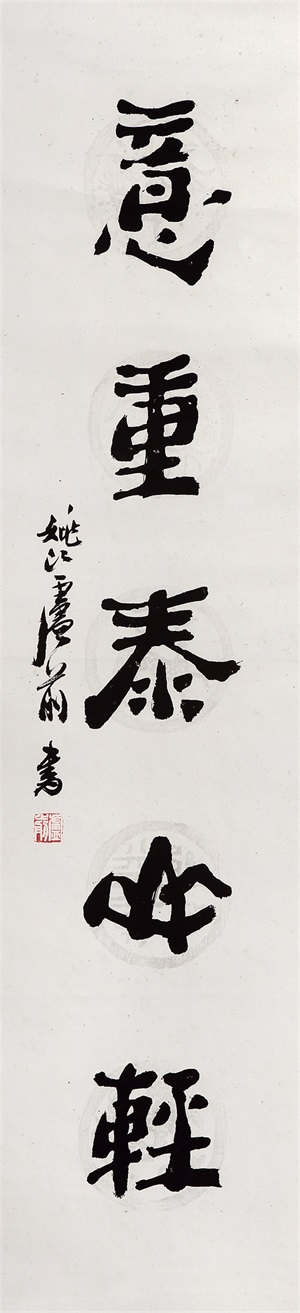 意重泰山輕
姚江盧前書